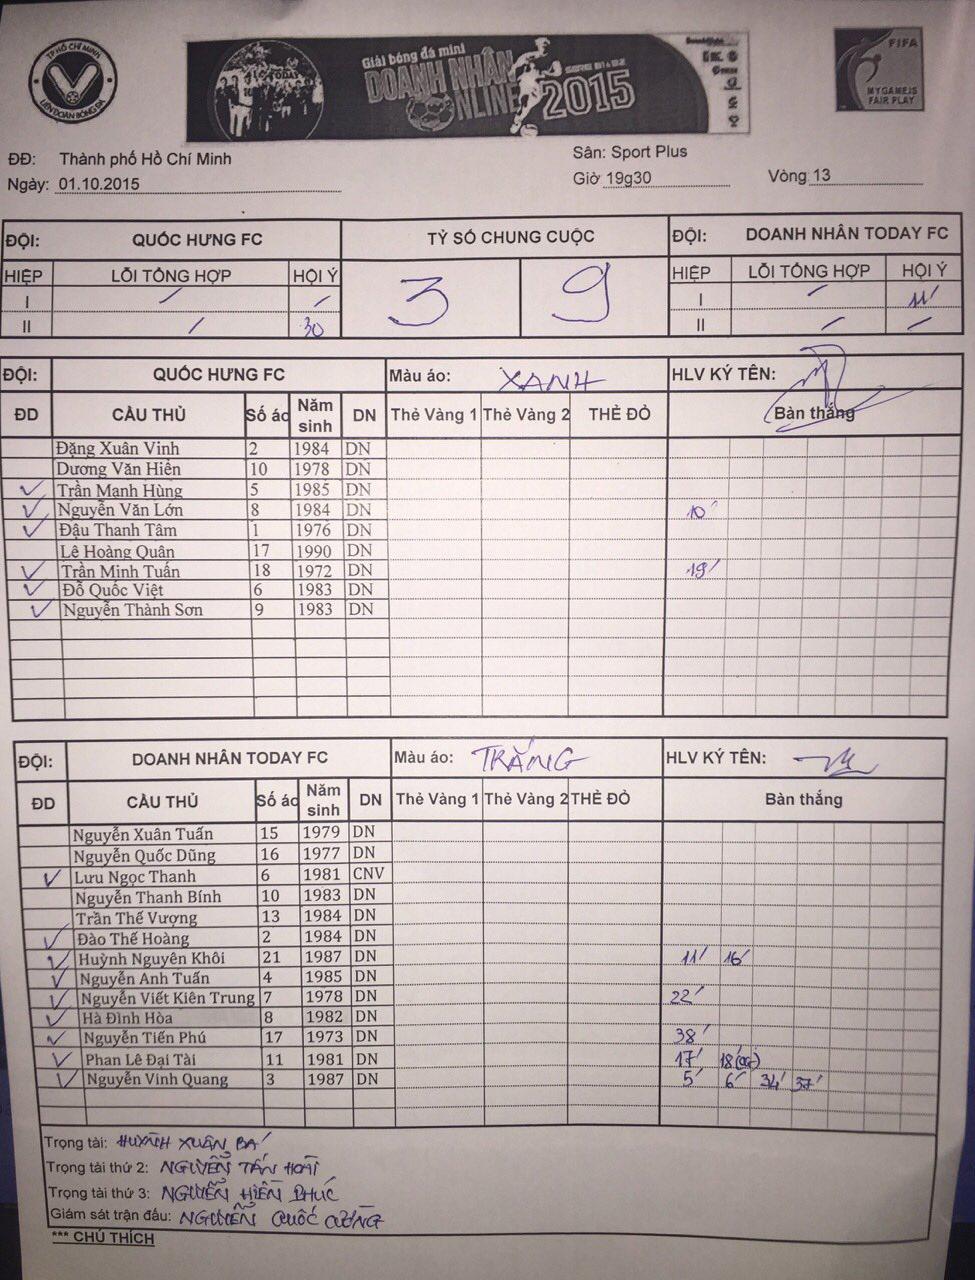 TP HỒ CHÍ MINH
LIÊN ĐOÀN BÓNG ĐÁ
TODAY
Giải bóng đá mini
DOANH NHÂN
NLINE 2015
FIFA
MYGAMEIS
FAIR PLAY
ĐĐ: Thành phố Hồ Chí Minh
Sân: Sport Plus
Ngày: 01.10.2015
Giờ 19g30
Vòng 13
ĐỘI: QUỐC HƯNG FC TỶ SỐ CHUNG CUỘC ĐỘI: DOANH NHÂN TODAY FC
HIỆP LỖI TỔNG HỢP HỘI Ý 3 9 HIỆP LỖI TỔNG HỢP HỘI Ý
I / / I / 11'
II / 30 II / /
ĐỘI: QUỐC HƯNG FC Màu áo: XANH HLV KÝ TÊN:
ĐD CẦU THỦ Số áo Năm sinh DN Thẻ Vàng 1 Thẻ Vàng 2 THẺ ĐỎ Bàn thắng
Đặng Xuân Vinh 2 1984 DN
Dương Văn Hiền 10 1978 DN
✓ Trần Mạnh Hùng 5 1985 DN
✓ Nguyễn Văn Lớn 8 1984 DN 10'
✓ Đậu Thanh Tâm 1 1976 DN
Lê Hoàng Quân 17 1990 DN
✓ Trần Minh Tuấn 18 1972 DN 19'
✓ Đỗ Quốc Việt 6 1983 DN
✓ Nguyễn Thành Sơn 9 1983 DN
ĐỘI: DOANH NHÂN TODAY FC Màu áo: TRẮNG HLV KÝ TÊN:
ĐD CẦU THỦ Số áo Năm sinh DN Thẻ Vàng 1 Thẻ Vàng 2 THẺ ĐỎ Bàn thắng
Nguyễn Xuân Tuấn 15 1979 DN
Nguyễn Quốc Dũng 16 1977 DN
✓ Lưu Ngọc Thanh 6 1981 CNV
Nguyễn Thanh Bính 10 1983 DN
Trần Thế Vượng 13 1984 DN
✓ Đào Thế Hoàng 2 1984 DN
✓ Huỳnh Nguyên Khôi 21 1987 DN 11' 16'
✓ Nguyễn Anh Tuấn 4 1985 DN
✓ Nguyễn Viết Kiên Trung 7 1978 DN 22'
✓ Hà Đình Hòa 8 1982 DN
✓ Nguyễn Tiến Phú 17 1973 DN 38'
✓ Phan Lê Đại Tài 11 1981 DN 17' 18'(OG)
✓ Nguyễn Vinh Quang 3 1987 DN 5' 6' 34' 37'
Trọng tài: HUỲNH XUÂN BÁ
Trọng tài thứ 2: NGUYỄN TẤN HOÀI
Trọng tài thứ 3: NGUYỄN HIỀN PHÚC
Giám sát trận đấu: NGUYỄN QUỐC CƯỜNG
*** CHÚ THÍCH